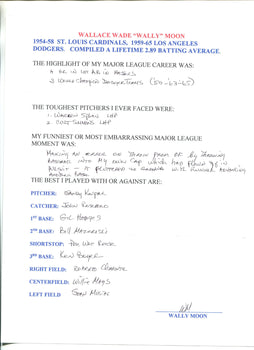 WALLACE WADE "WALLY" MOON
1954-58 ST. LOUIS CARDINALS, 1959-65 LOS ANGELES
DODGERS. COMPILED A LIFETIME 2.89 BATTING AVERAGE.
THE HIGHLIGHT OF MY MAJOR LEAGUE CAREER WAS:
1. HR IN 1st AB IN
2. World Championship Teams (59-63-65)
THE TOUGHEST PITCHERS I EVER FACED WERE:
1. Warren Spahn LHP
2. Curt Simmons LHP
MY FUNNIEST OR MOST EMBARRASSING MAJOR LEAGUE
MOMENT WAS:
Making an error on
into my own cap which had
AND
THE BEST I PLAYED WITH OR AGAINST ARE:
PITCHER: Sandy Koufax
CATCHER: John Roseboro
1ST BASE: Gil Hodges
2ND BASE: Bill Mazeroski
SHORTSTOP: Pee Wee Reese
3RD BASE: Ken Boyer
RIGHT FIELD: Roberto Clemente
CENTERFIELD: Willie Mays
LEFT FIELD Stan Musial
WALLY MOON